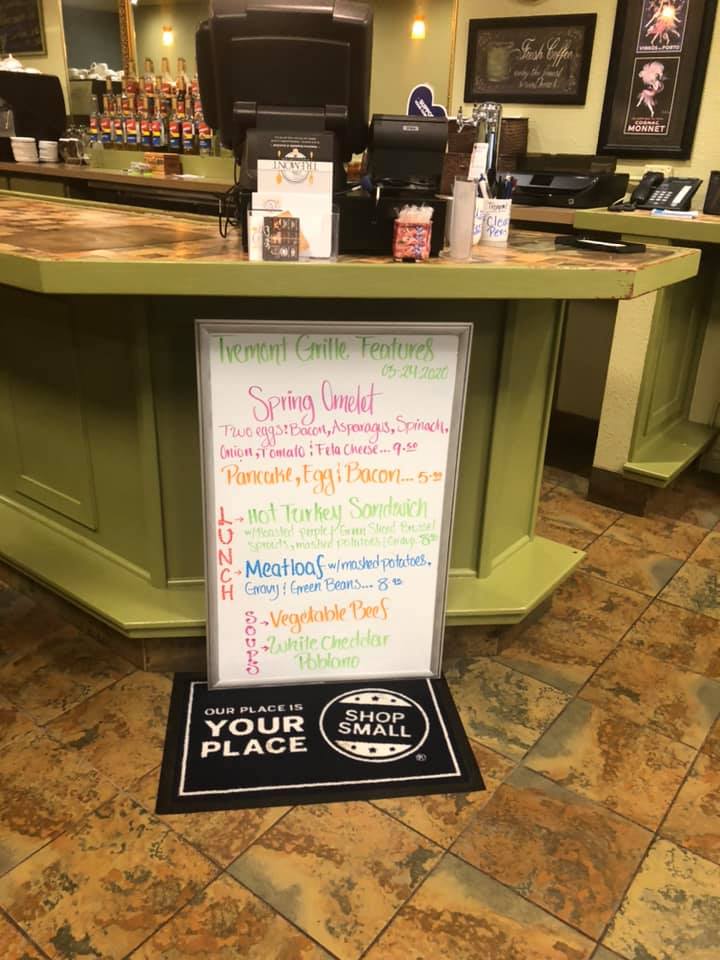 Fresh Coffee
VINHOS do PORTO
COGNAC
MONNET
TREMONT
Clean
Pens
Tremont Grille Features
03-24-2020
Spring Omelet
Two eggs: Bacon, Asparagus, Spinach,
Onion, Tomato & Feta Cheese... 9.50
Pancake, Egg & Bacon... 5.50
LUNCH
Hot Turkey Sandwich
w/Roasted purple & Green Sliced Brussel
sprouts, mashed potatoes & Gravy.
Meatloaf w/mashed potatoes,
Gravy & Green Beans...
SOUPS
Vegetable Beef
White Cheddar
Poblano
OUR PLACE IS
YOUR
PLACE
SHOP
SMALL
®